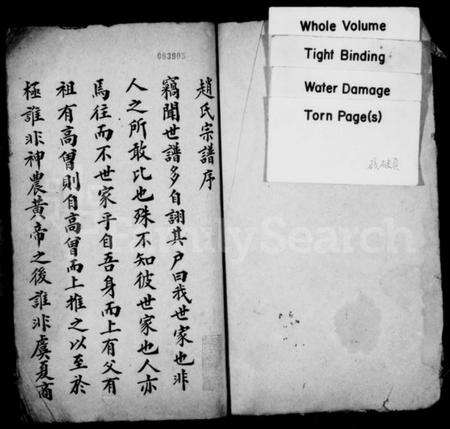 趙氏宗譜序
竊聞世譜多自詡其戶曰我世家也非
人之所敢比也殊不知彼世家也人亦
馬往而不世家乎自吾身而上有父有
祖有高曾則自高曾而上推之以至於
極誰非神農黃帝之後誰非虞夏商
003905
Whole Volume
Tight Binding
Water Damage
Torn Page(s)